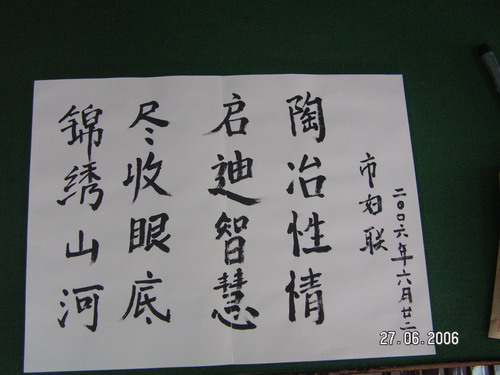 二〇〇六年六月廿二
市妇联
陶冶性情
启迪智慧
尽收眼底
锦绣山河
27.06.2006